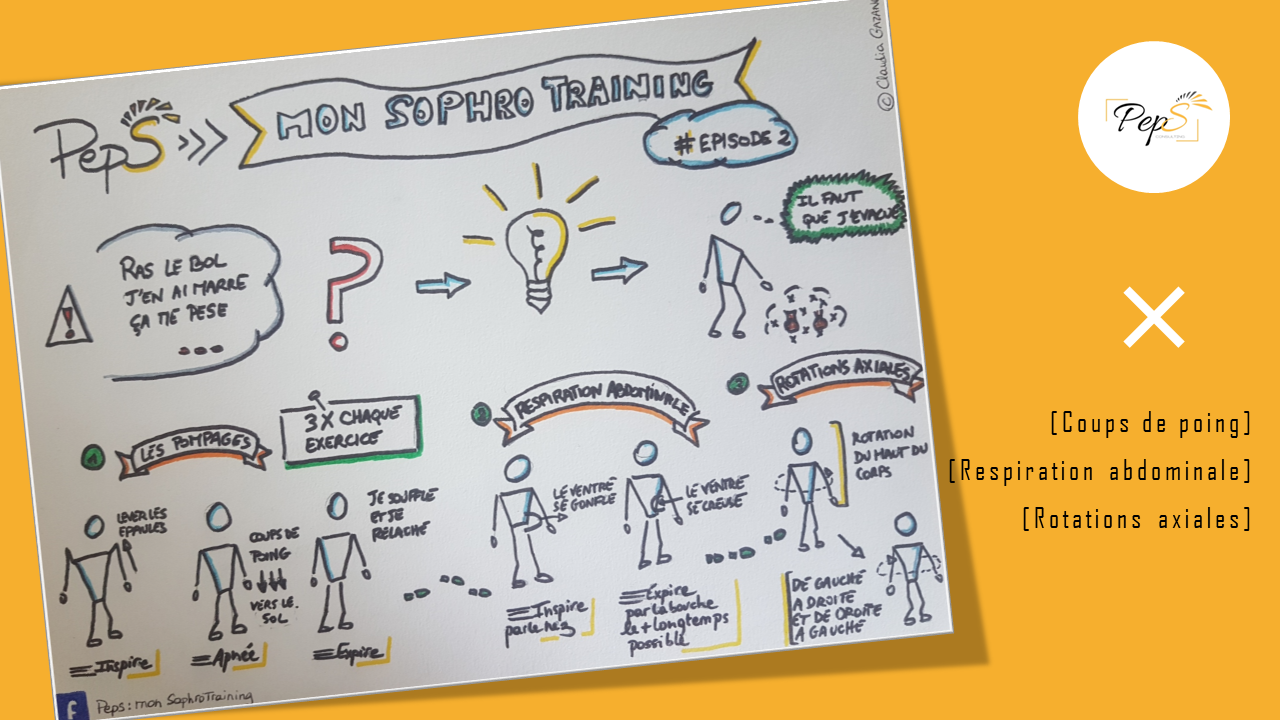 PepS
MON SOPHRO TRAINING
# EPISODE 2
© Claudia GAZAN
RAS LE BOL
J'EN AI MARRE
ÇA ME PESE
...
?
IL FAUT
QUE J'EVACUE
1
LES POMPAGES
3X CHAQUE
EXERCICE
LEVER LES
EPAULES
COUPS DE
POING
VERS LE
SOL
JE SOUFFLE
ET JE
RELACHE
Inspire
Apnée
Expire
2
RESPIRATION ABDOMINALE
LE VENTRE
SE GONFLE
LE VENTRE
SE CREUSE
Inspire
par le nez
Expire
par la bouche
le + longtemps
possible
3
ROTATIONS AXIALES
ROTATION
DU HAUT DU
CORPS
DE GAUCHE
A DROITE
ET DE DROITE
A GAUCHE
f Peps : mon SophroTraining
PepS
[Coups de poing]
[Respiration abdominale]
[Rotations axiales]